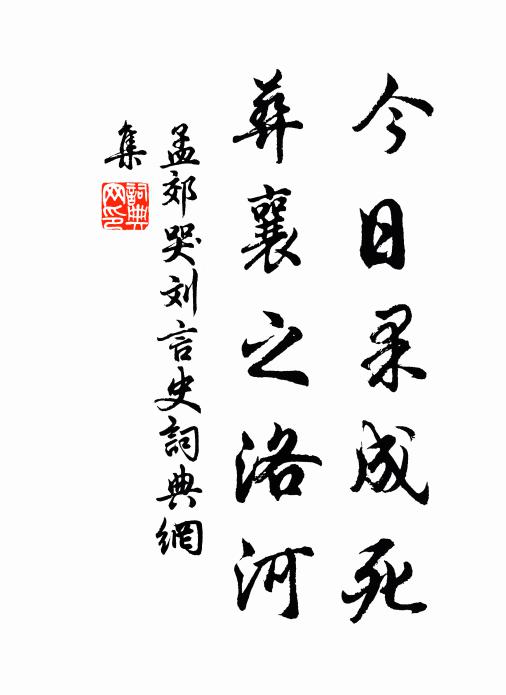 今日果成死
葬襄之洛河
孟郊哭刘言史詞典網
集
詞典
网印